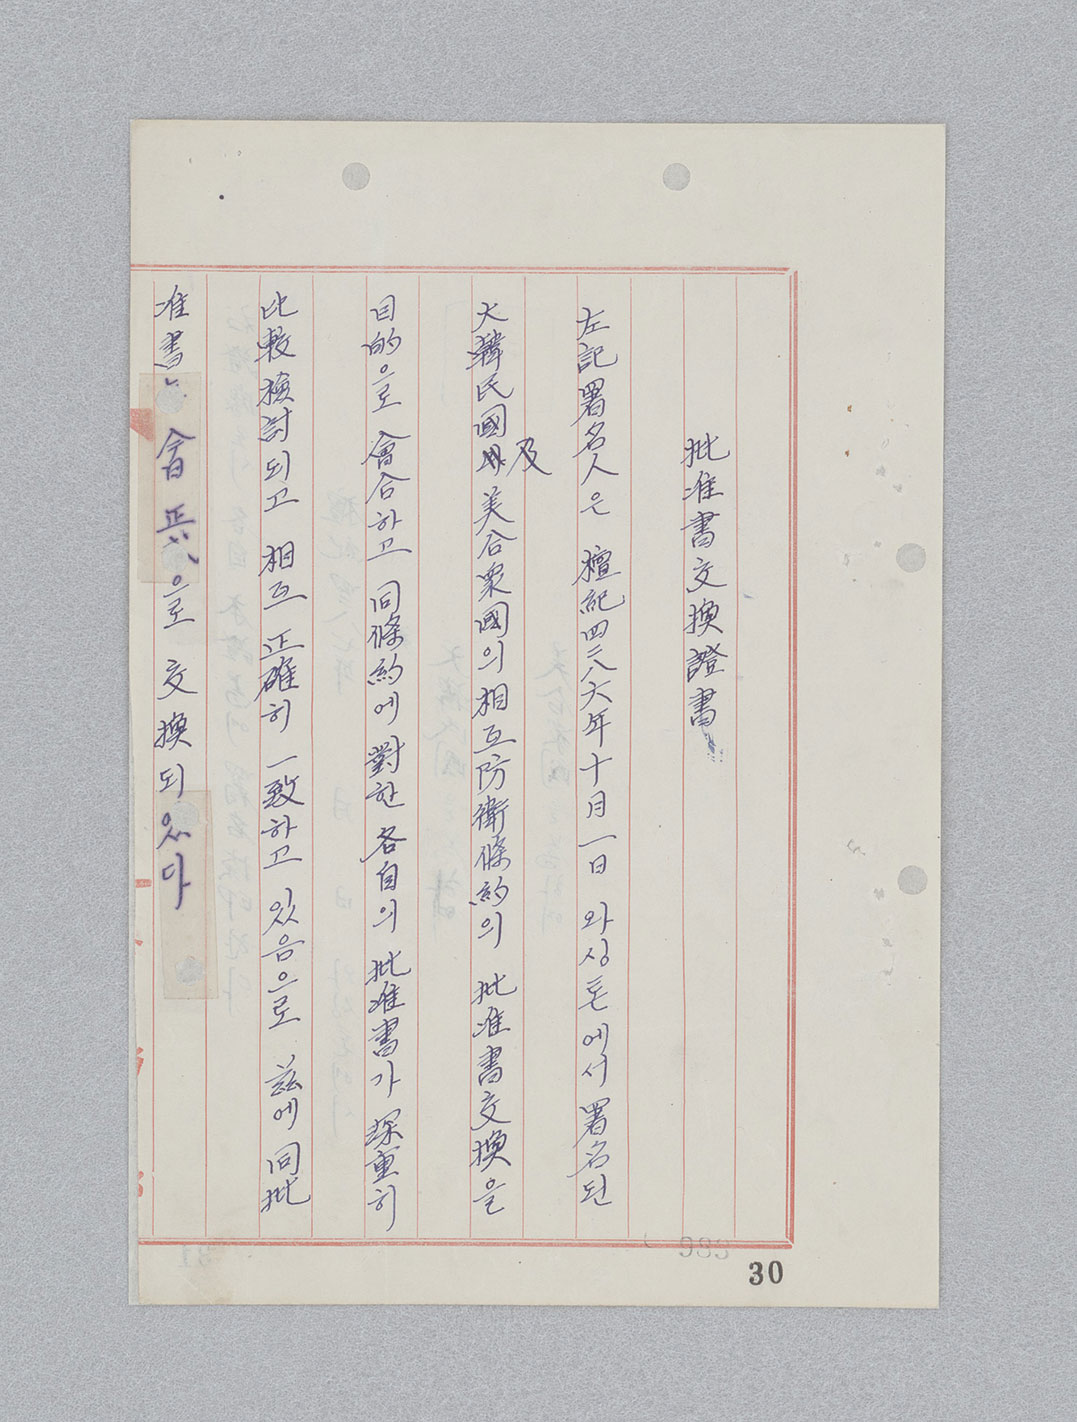 批准書交換證書
左記署名人은 檀紀四二八六年十月一日 와싱톤에서 署名된
大韓民國及美合衆國의 相互防衛條約의 批准書交換을
目的으로 會合하고 同條約에 對한 各自의 批准書가 深重히
比較檢討되고 相互 正確히 一致하고 있음으로 玆에 同批
准書 會 으로 交換되있다
30